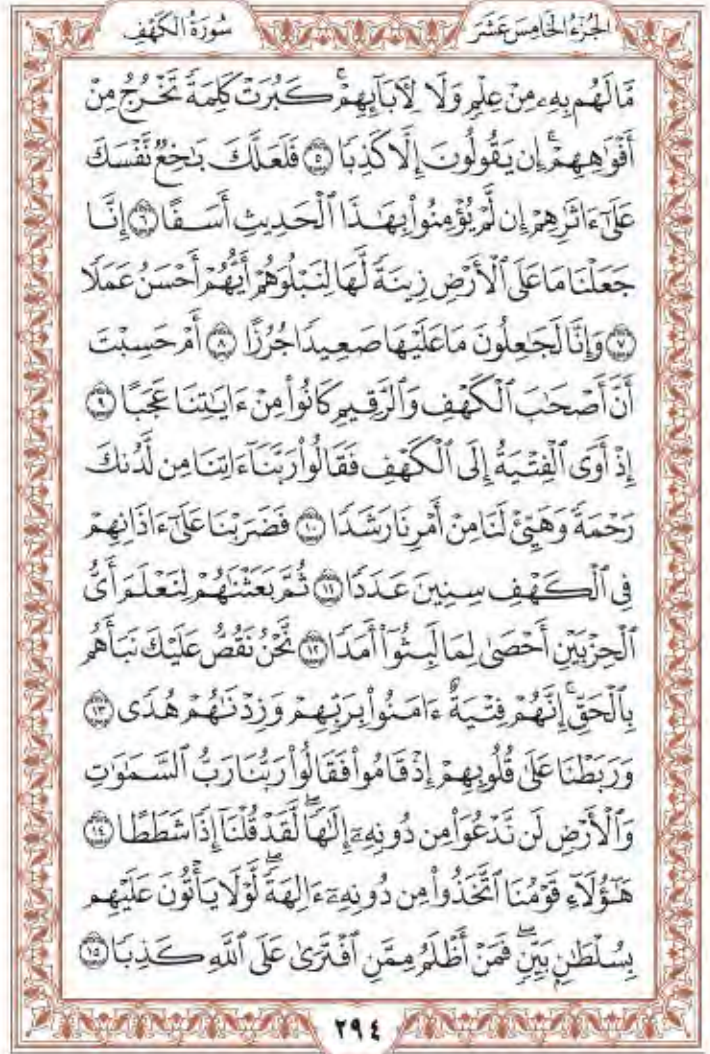 الجُزْءُ الخَامِسَ عَشَرَ
سُورَةُ الكَهْفِ
مَّا لَهُم بِهِۦ مِنْ عِلْمٍ وَلَا لِأٓبَآئِهِمْۚ كَبُرَتْ كَلِمَةً تَخْرُجُ مِنْ
أَفْوَٰهِهِمْۚ إِن يَقُولُونَ إِلَّا كَذِبًا ٥ فَلَعَلَّكَ بَٰخِعٌ نَّفْسَكَ
عَلَىٰٓ ءَاثَٰرِهِمْ إِن لَّمْ يُؤْمِنُوا۟ بِهَٰذَا ٱلْحَدِيثِ أَسَفًا ٦ إِنَّا
جَعَلْنَا مَا عَلَى ٱلْأَرْضِ زِينَةً لَّهَا لِنَبْلُوَهُمْ أَيُّهُمْ أَحْسَنُ عَمَلًا
٧ وَإِنَّا لَجَٰعِلُونَ مَا عَلَيْهَا صَعِيدًا جُرُزًا ٨ أَمْ حَسِبْتَ
أَنَّ أَصْحَٰبَ ٱلْكَهْفِ وَٱلرَّقِيمِ كَانُوا۟ مِنْ ءَايَٰتِنَا عَجَبًا ٩
إِذْ أَوَى ٱلْفِتْيَةُ إِلَى ٱلْكَهْفِ فَقَالُوا۟ رَبَّنَآ ءَاتِنَا مِن لَّدُنكَ
رَحْمَةً وَهَيِّئْ لَنَا مِنْ أَمْرِنَا رَشَدًا ١٠ فَضَرَبْنَا عَلَىٰٓ ءَاذَانِهِمْ
فِى ٱلْكَهْفِ سِنِينَ عَدَدًا ١١ ثُمَّ بَعَثْنَٰهُمْ لِنَعْلَمَ أَىُّ
ٱلْحِزْبَيْنِ أَحْصَىٰ لِمَا لَبِثُوٓا۟ أَمَدًا ١٢ نَّحْنُ نَقُصُّ عَلَيْكَ نَبَأَهُم
بِٱلْحَقِّۚ إِنَّهُمْ فِتْيَةٌ ءَامَنُوا۟ بِرَبِّهِمْ وَزِدْنَٰهُمْ هُدًى ١٣
وَرَبَطْنَا عَلَىٰ قُلُوبِهِمْ إِذْ قَامُوا۟ فَقَالُوا۟ رَبُّنَا رَبُّ ٱلسَّمَٰوَٰتِ
وَٱلْأَرْضِ لَن نَّدْعُوَا۟ مِن دُونِهِۦٓ إِلَٰهًاۖ لَّقَدْ قُلْنَآ إِذًا شَطَطًا ١٤
هَٰٓؤُلَآءِ قَوْمُنَا ٱتَّخَذُوا۟ مِن دُونِهِۦٓ ءَالِهَةًۖ لَّوْلَا يَأْتُونَ عَلَيْهِم
بِسُلْطَٰنٍۭ بَيِّنٍۖ فَمَنْ أَظْلَمُ مِمَّنِ ٱفْتَرَىٰ عَلَى ٱللَّهِ كَذِبًا ١٥
٢٩٤